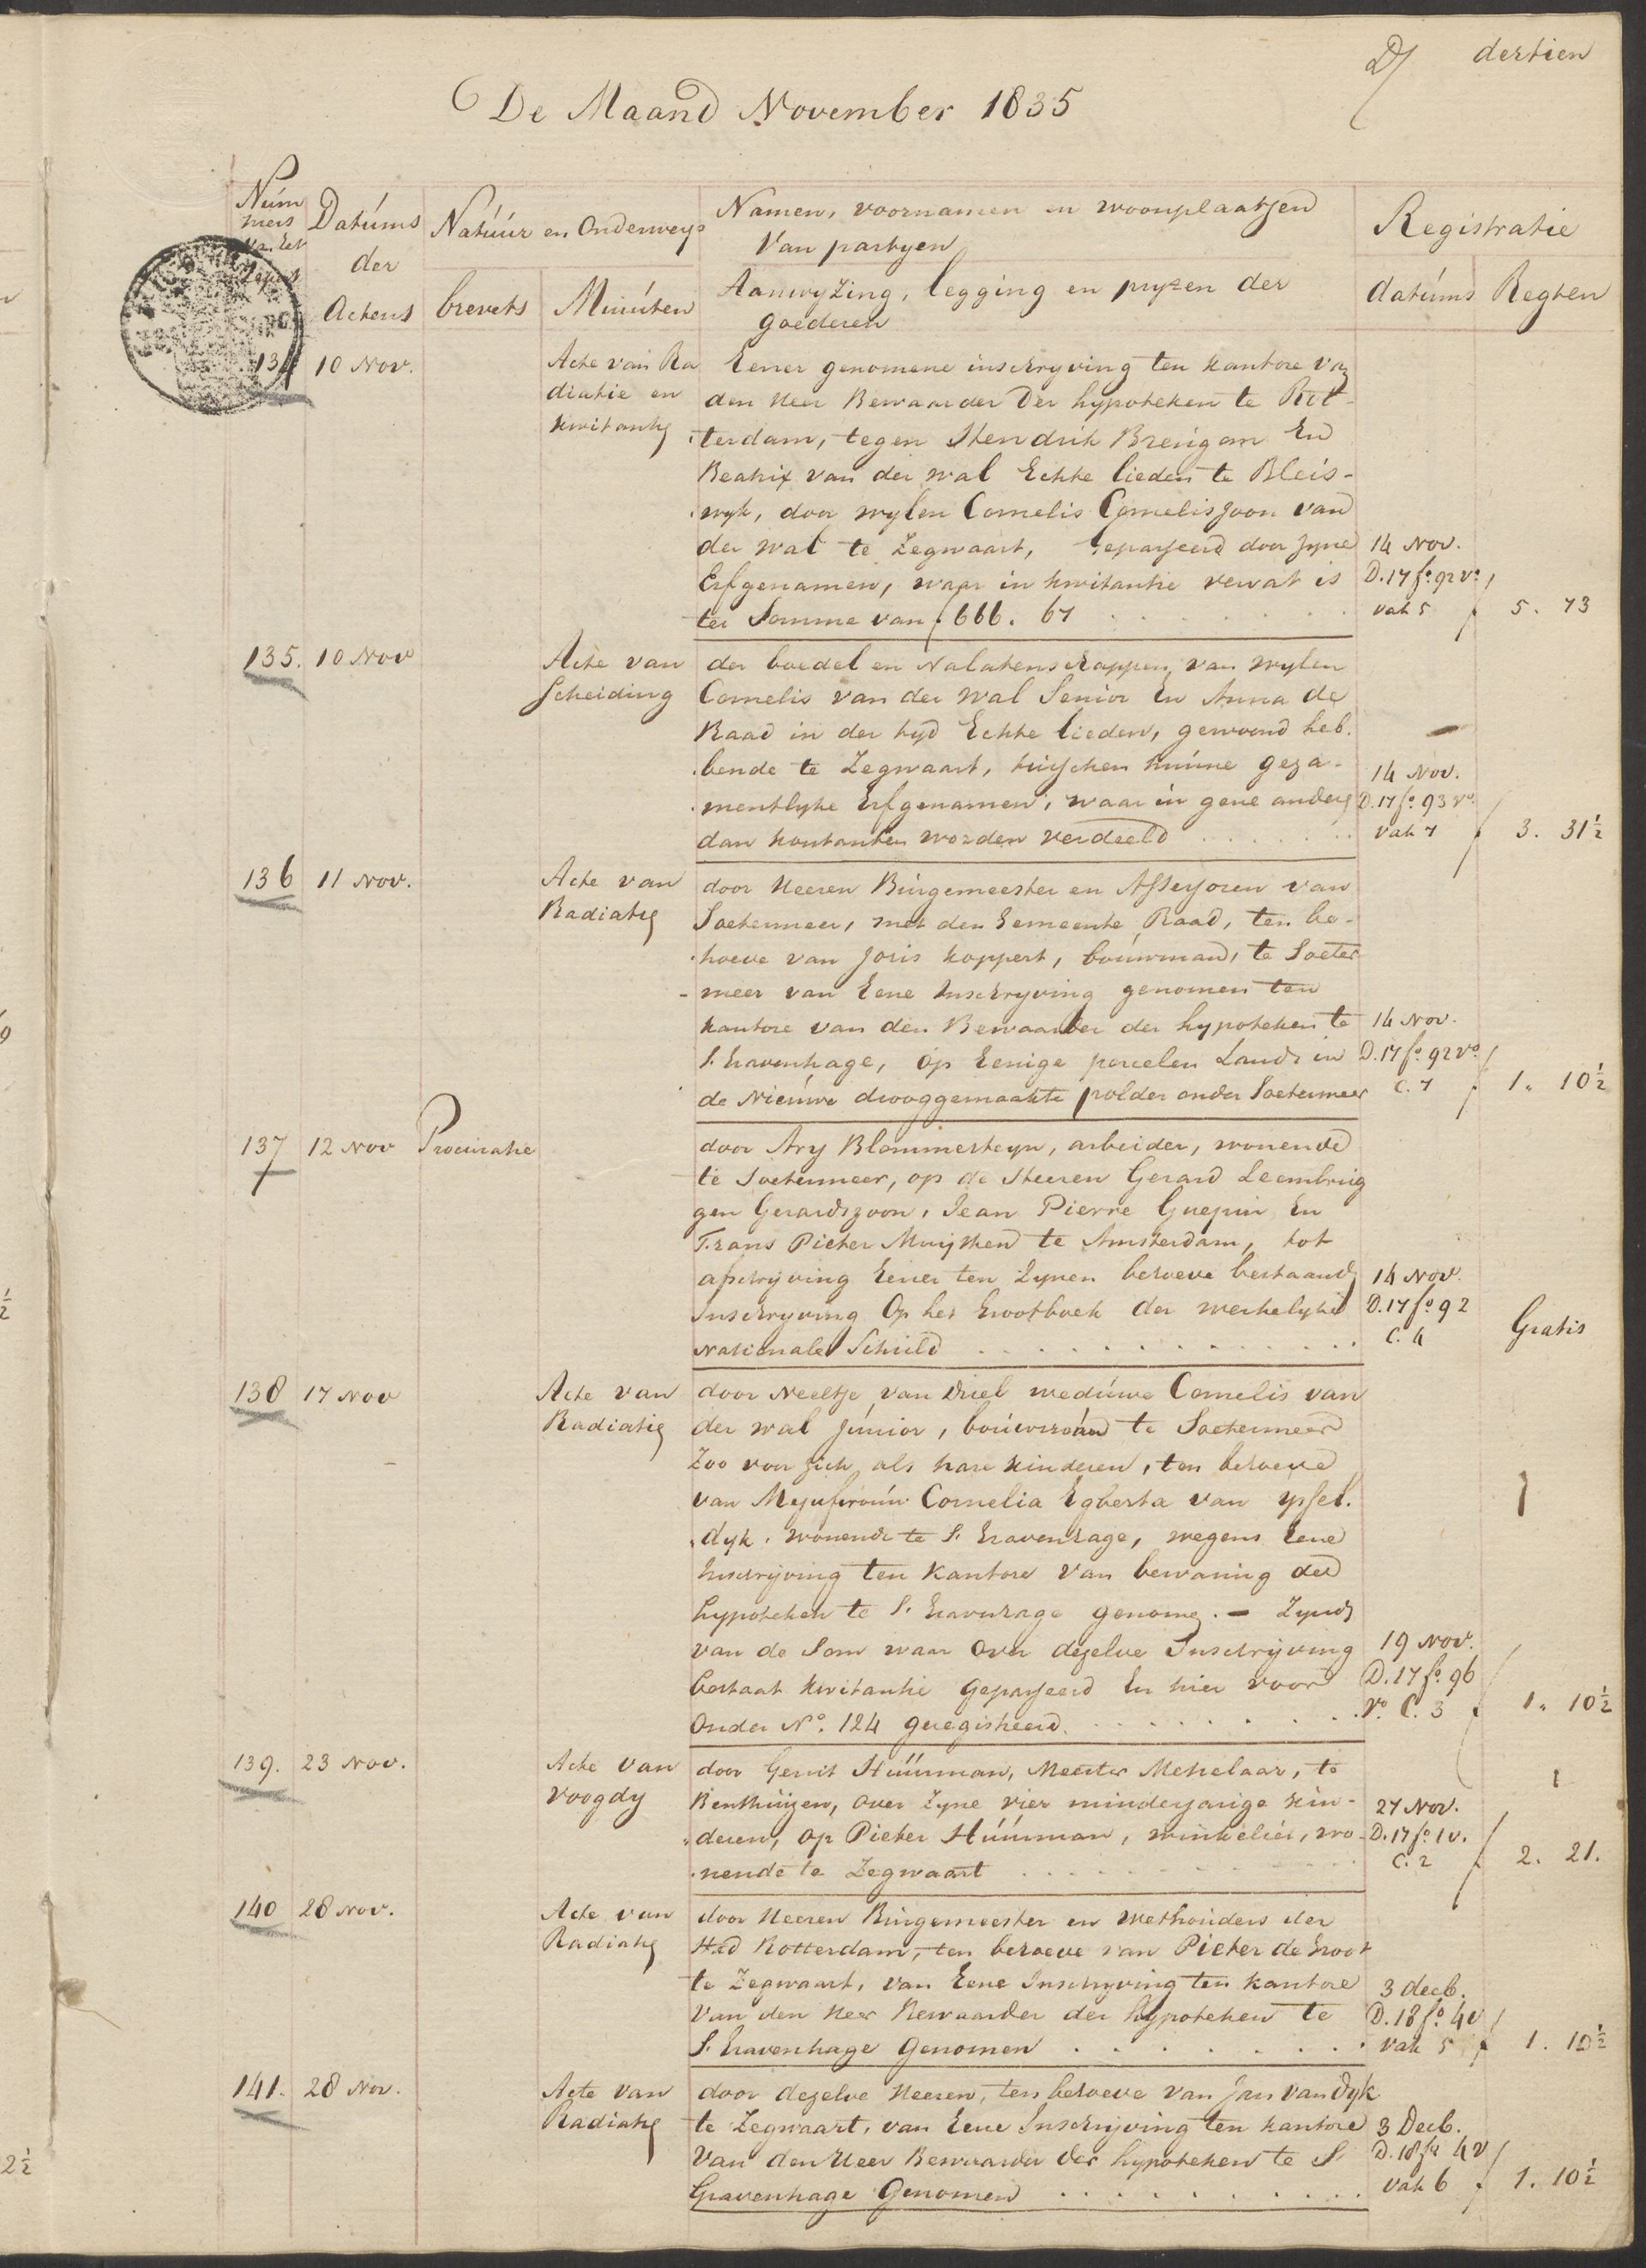 dertien
De Maand November 1835
Num
mers
van het
Datums
der
Actens
Natuur en Onderwerp
brevets
Minuten
Namen, voornamen en woonplaatsen
Van partyen
Aanwyzing, legging en pryzen der
goederen
Registratie
datums
Regten
134 10 Nov.
Acte van Ra
diatie en
kwitantie
Eener genomene inschryving ten kantore van
den Heer Bewaarder der hypotheken te Rot
terdam, tegen Hendrik Breugom En
Beatrix van der wal Echte lieden te Bleis-
wyk, door wylen Cornelis Corneliszoon van
der wal te Zegwaart, gepasseerd door zyne
Erfgenamen, waar in kwitantie vervat is
ter Somme van ƒ 666. 67
14 Nov.
D. 17 fo. 92 vo.
vak 5
ƒ 5. 73
135. 10 Nov
Acte van
Scheiding
der boedel en Nalatenschappen van wylen
Cornelis van der Wal Senior En Anna de
Raad in der tyd Echte lieden, gewoond heb.
bende te Zegwaart, tusschen hunne geza-
mentlyke Erfgenamen, waar in gene anders
dan kontanten worden verdeeld
14 Nov.
D. 17 fo. 93 vo.
Vak 7
ƒ 3. 31½
136 11 Nov.
Acte van
Radiatie
door Heeren Burgemeester en Assessoren van
Soetermeer, met den Gemeente Raad, ten be-
hoeve van Joris koppert, bouwman, te Soeter
meer van Eene Inschryving genomen ten
kantore van den Bewaarder der hypotheken te
S. Gravenhage, op Eenige parcelen Lands in
de Nieuwe drooggemaakte polder onder Soetermeer
14 Nov.
D. 17 fo. 92 vo.
C. 7
ƒ 1. 10½
137 12 Nov Procuratie
door Ary Blommesteyn, arbeider, wonende
te Soetermeer, op de Heeren Gerard Leembrug
gen Gerardszoon, Jean Pierre Guepin En
Frans Pieter Muysken te Amsterdam, tot
afschryving Eener ten zynen behoeve bestaande
Inschryving Op het Grootboek der werkelyke
Nationale Schuld
14 Nov.
D. 17 fo. 92
C. 4
Gratis
138 17 Nov
Acte van
Radiatie
door Neeltje van Driel weduwe Cornelis van
der wal junior, bouwman te Soetermeer
Zoo voor zich als hare kinderen, ten behoeve
van Mejufvrouw Cornelia Egberta van yssel.
dyk, wonende te S. Gravenhage, wegens Eene
Inschrijving ten Kantore van bewaring der
hypotheken te S. Gravenhage genomen. - Zynde
van de Som waar over dezelve Inschrijving
bestaat kwitantie Gepasseerd En hier voor
Onder No. 124 geregistreerd.
19 Nov.
D. 17 fo. 96
Vo. C. 3
ƒ 1. 10½
139. 23 Nov.
Acte van
voogdy
door Gerrit Huurman, Meester Metselaar, te
Benthuizen, over Zyne vier minderjarige kin-
deren, op Pieter Huurman, winkelier, wo-
nende te Zegwaart
27 Nov.
D. 17 fo. 1 v.
C. 2
ƒ 2. 21.
140 28 Nov.
Acte van
Radiatie
door Heeren Burgemeester en Wethouders der
Stad Rotterdam, ten behoeve van Pieter de Groot
te Zegwaart, van Eene Inschryving ten kantore
Van den Heer Bewaarder der hypotheken te
S. Gravenhage Genomen
3 decb.
D. 18 fo. 4 v
vak 5
ƒ 1. 10½
141. 28 Nov.
Acte van
Radiatie
door dezelve Heeren, ten behoeve van Jan van Dyk
te Zegwaart, van Eene Inschryving ten kantore
Van den Heer Bewaarder der hypotheken te S
Gravenhage Genomen
3 Decb.
D. 18 fo. 4 v
vak 6
ƒ 1. 10½